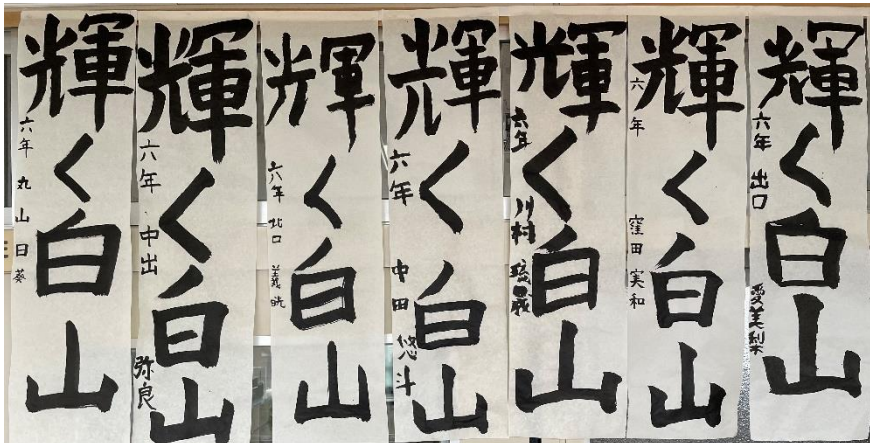 輝く白山
六年 出口 愛美梨
輝く白山
六年 窪田 実和
輝く白山
六年 川村
輝く白山
六年 中田 悠斗
輝く白山
六年 北口
輝く白山
六年 中出 弥良
輝く白山
六年 丸山日葵